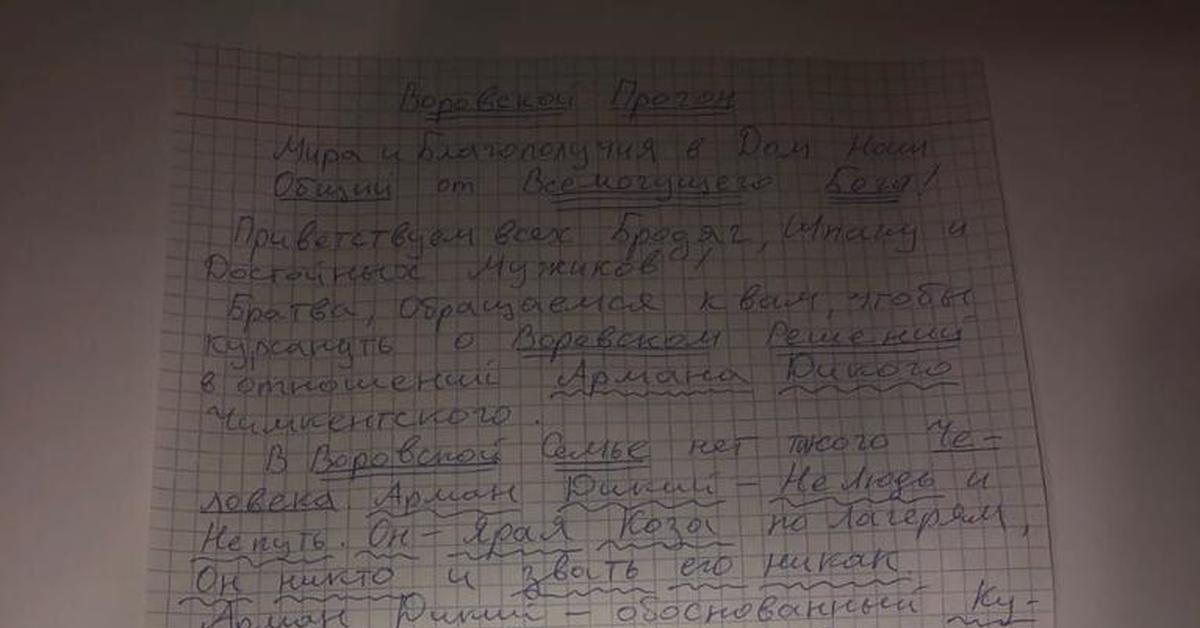 Воровской Прогон
Мира и Благополучия в Дом Наш
Общий от Всемогущего Бога!
Приветствуем всех Бродяг, Шпану и
Достойных Мужиков!
Братва, обращаемся к вам, чтобы
курсануть о Воровском Решений
в отношений Армана Дикого
Чимкентского.
В Воровской Семье нет такого Че-
ловека Арман Дикий - Нелюдь и
Непуть. Он - Ярая Коза по лагерям,
Он никто и звать его никак.
Арман Дикий - обоснованный Ку-